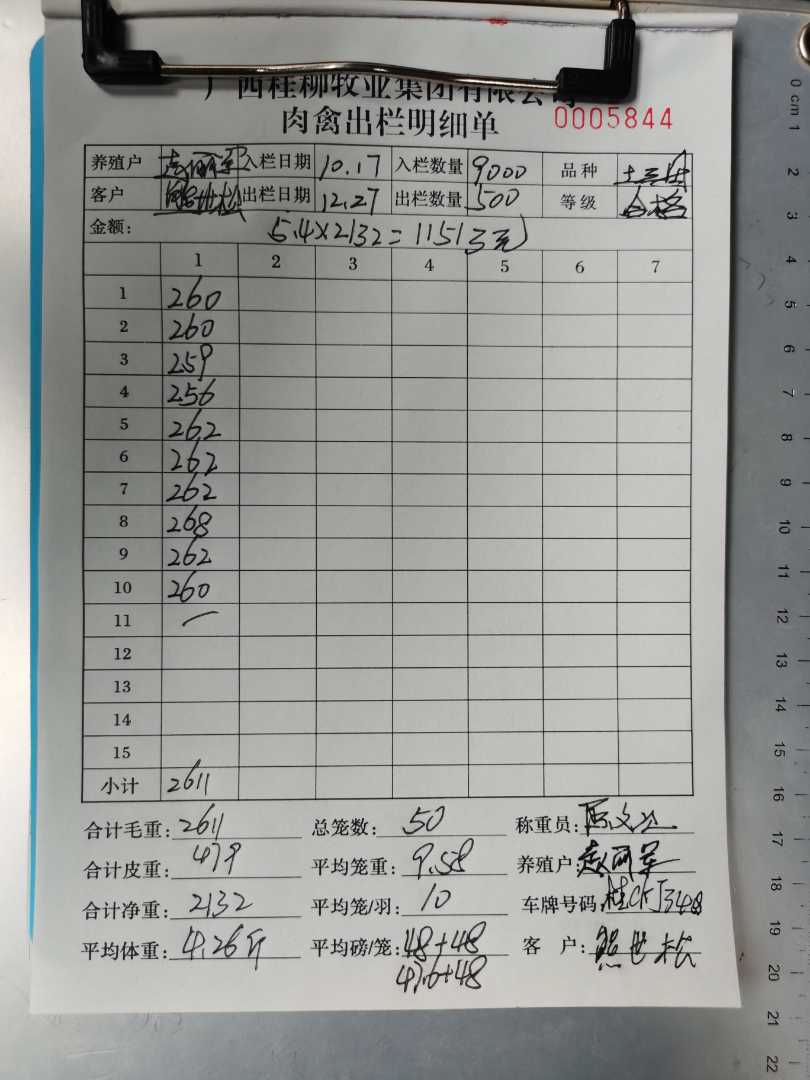 广西桂柳牧业集团有限公司
肉禽出栏明细单 0005844
养殖户 入栏日期 10.17 入栏数量 9000 品种
客户 出栏日期 12.27 出栏数量 500 等级 合格
金额: 5.4×2132=11513元
1 2 3 4 5 6 7
1 260
2 260
3 259
4 256
5 262
6 262
7 262
8 268
9 262
10 260
11 一
12
13
14
15
小计 2611
合计毛重: 2611 总笼数: 50 称重员:
合计皮重: 479 平均笼重: 9.58 养殖户:
合计净重: 2132 平均笼/羽: 10 车牌号码:
平均体重: 4.26斤 平均磅/笼: 48+48 客 户: 熊世松
47.6+48
0 cm 1 2 3 4 5 6 7 8 9 10 11 12 13 14 15 16 17 18 19 20 21 22